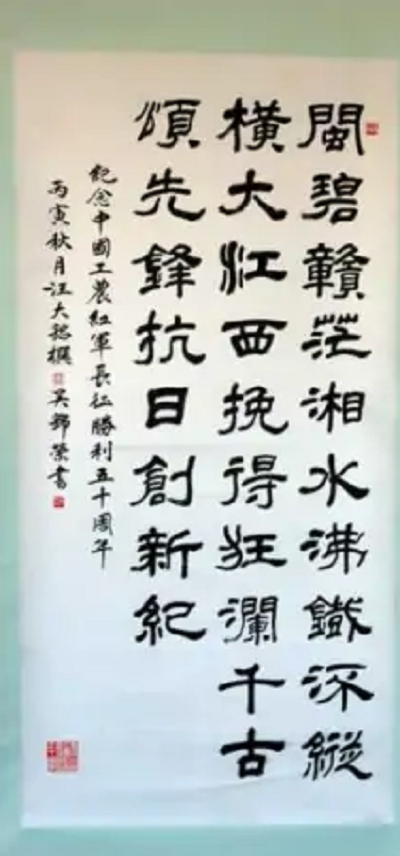 閩碧贛茫湘水沸鐵流縱
橫大江西挽得狂瀾千古
頌先鋒抗日創新紀
紀念中國工農紅軍長征勝利五十周年
丙寅秋月汪大 撰 吴錦榮書